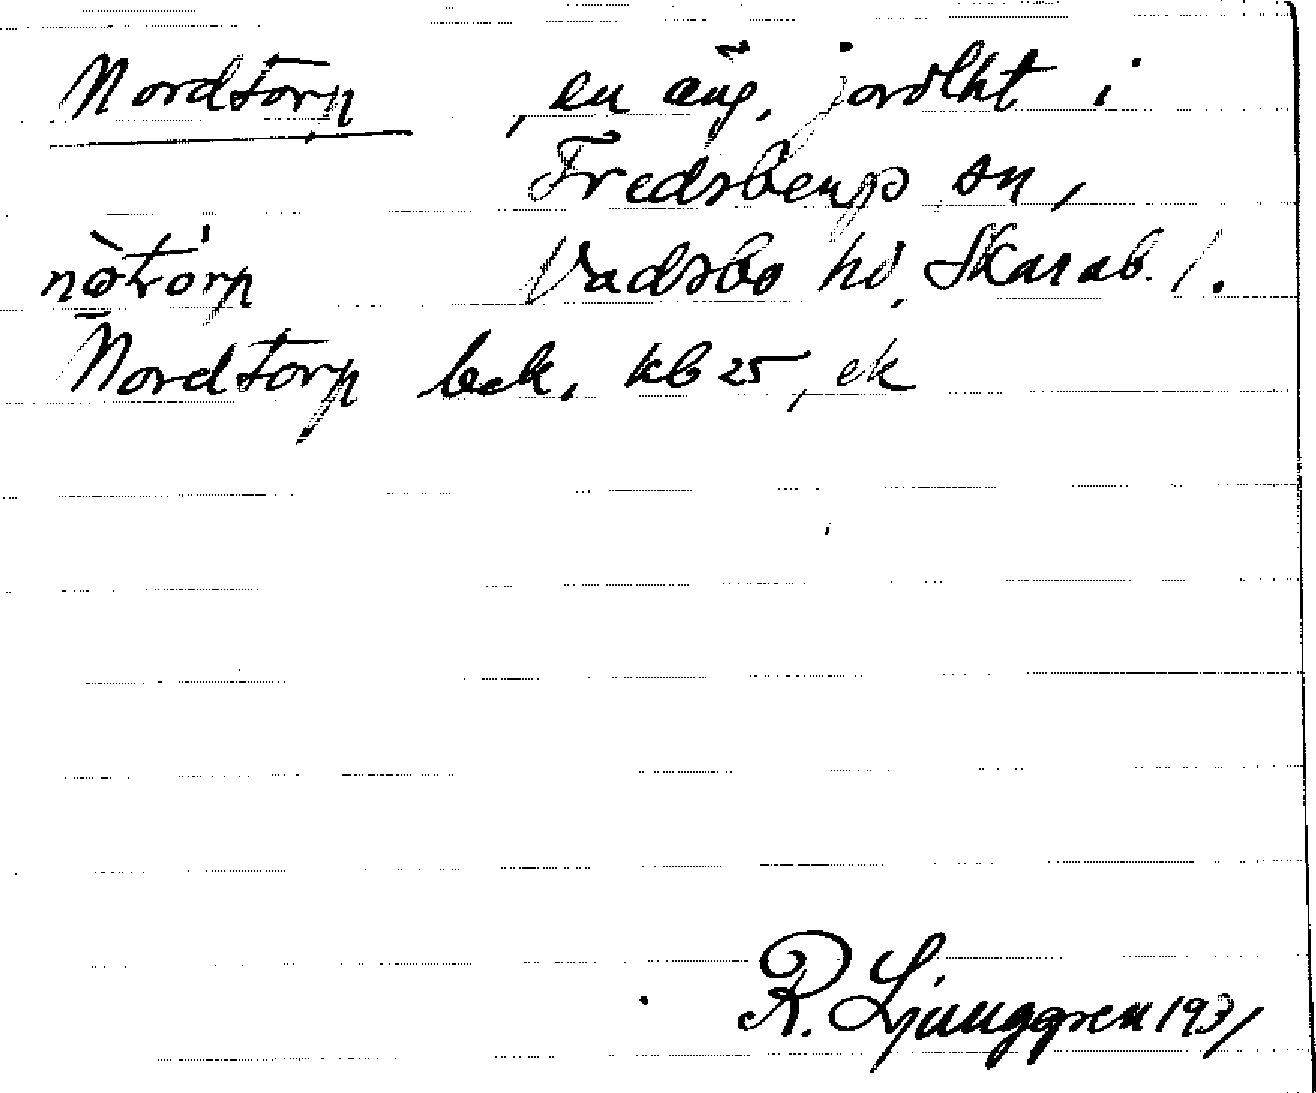 Nordtorp , en äng, jordlht i
Fredsbergs sn,
nòtórp Vadsbo hd, Skarab. l.
Nordtorp bek. kb 25, ek
R. Ljunggren 1931